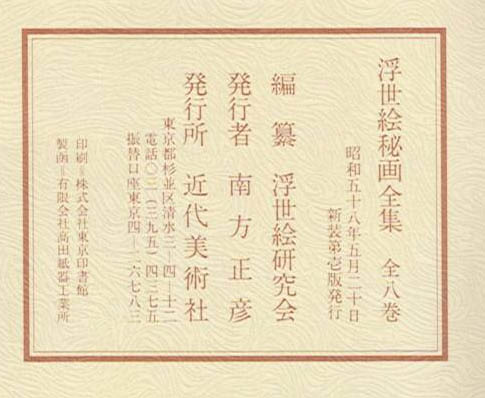 浮世絵秘画全集　全八巻
昭和五十八年五月二十日
新装第壱版発行
編　纂　浮世絵研究会
発行者　南方正彦
発行所　近代美術社
東京都杉並区清水三―四―十二
電話〇三(三九五)四三七五
振替口座東京四―一六七八三
印刷＝株式会社東京印書館
製函＝有限会社高田紙器工業所